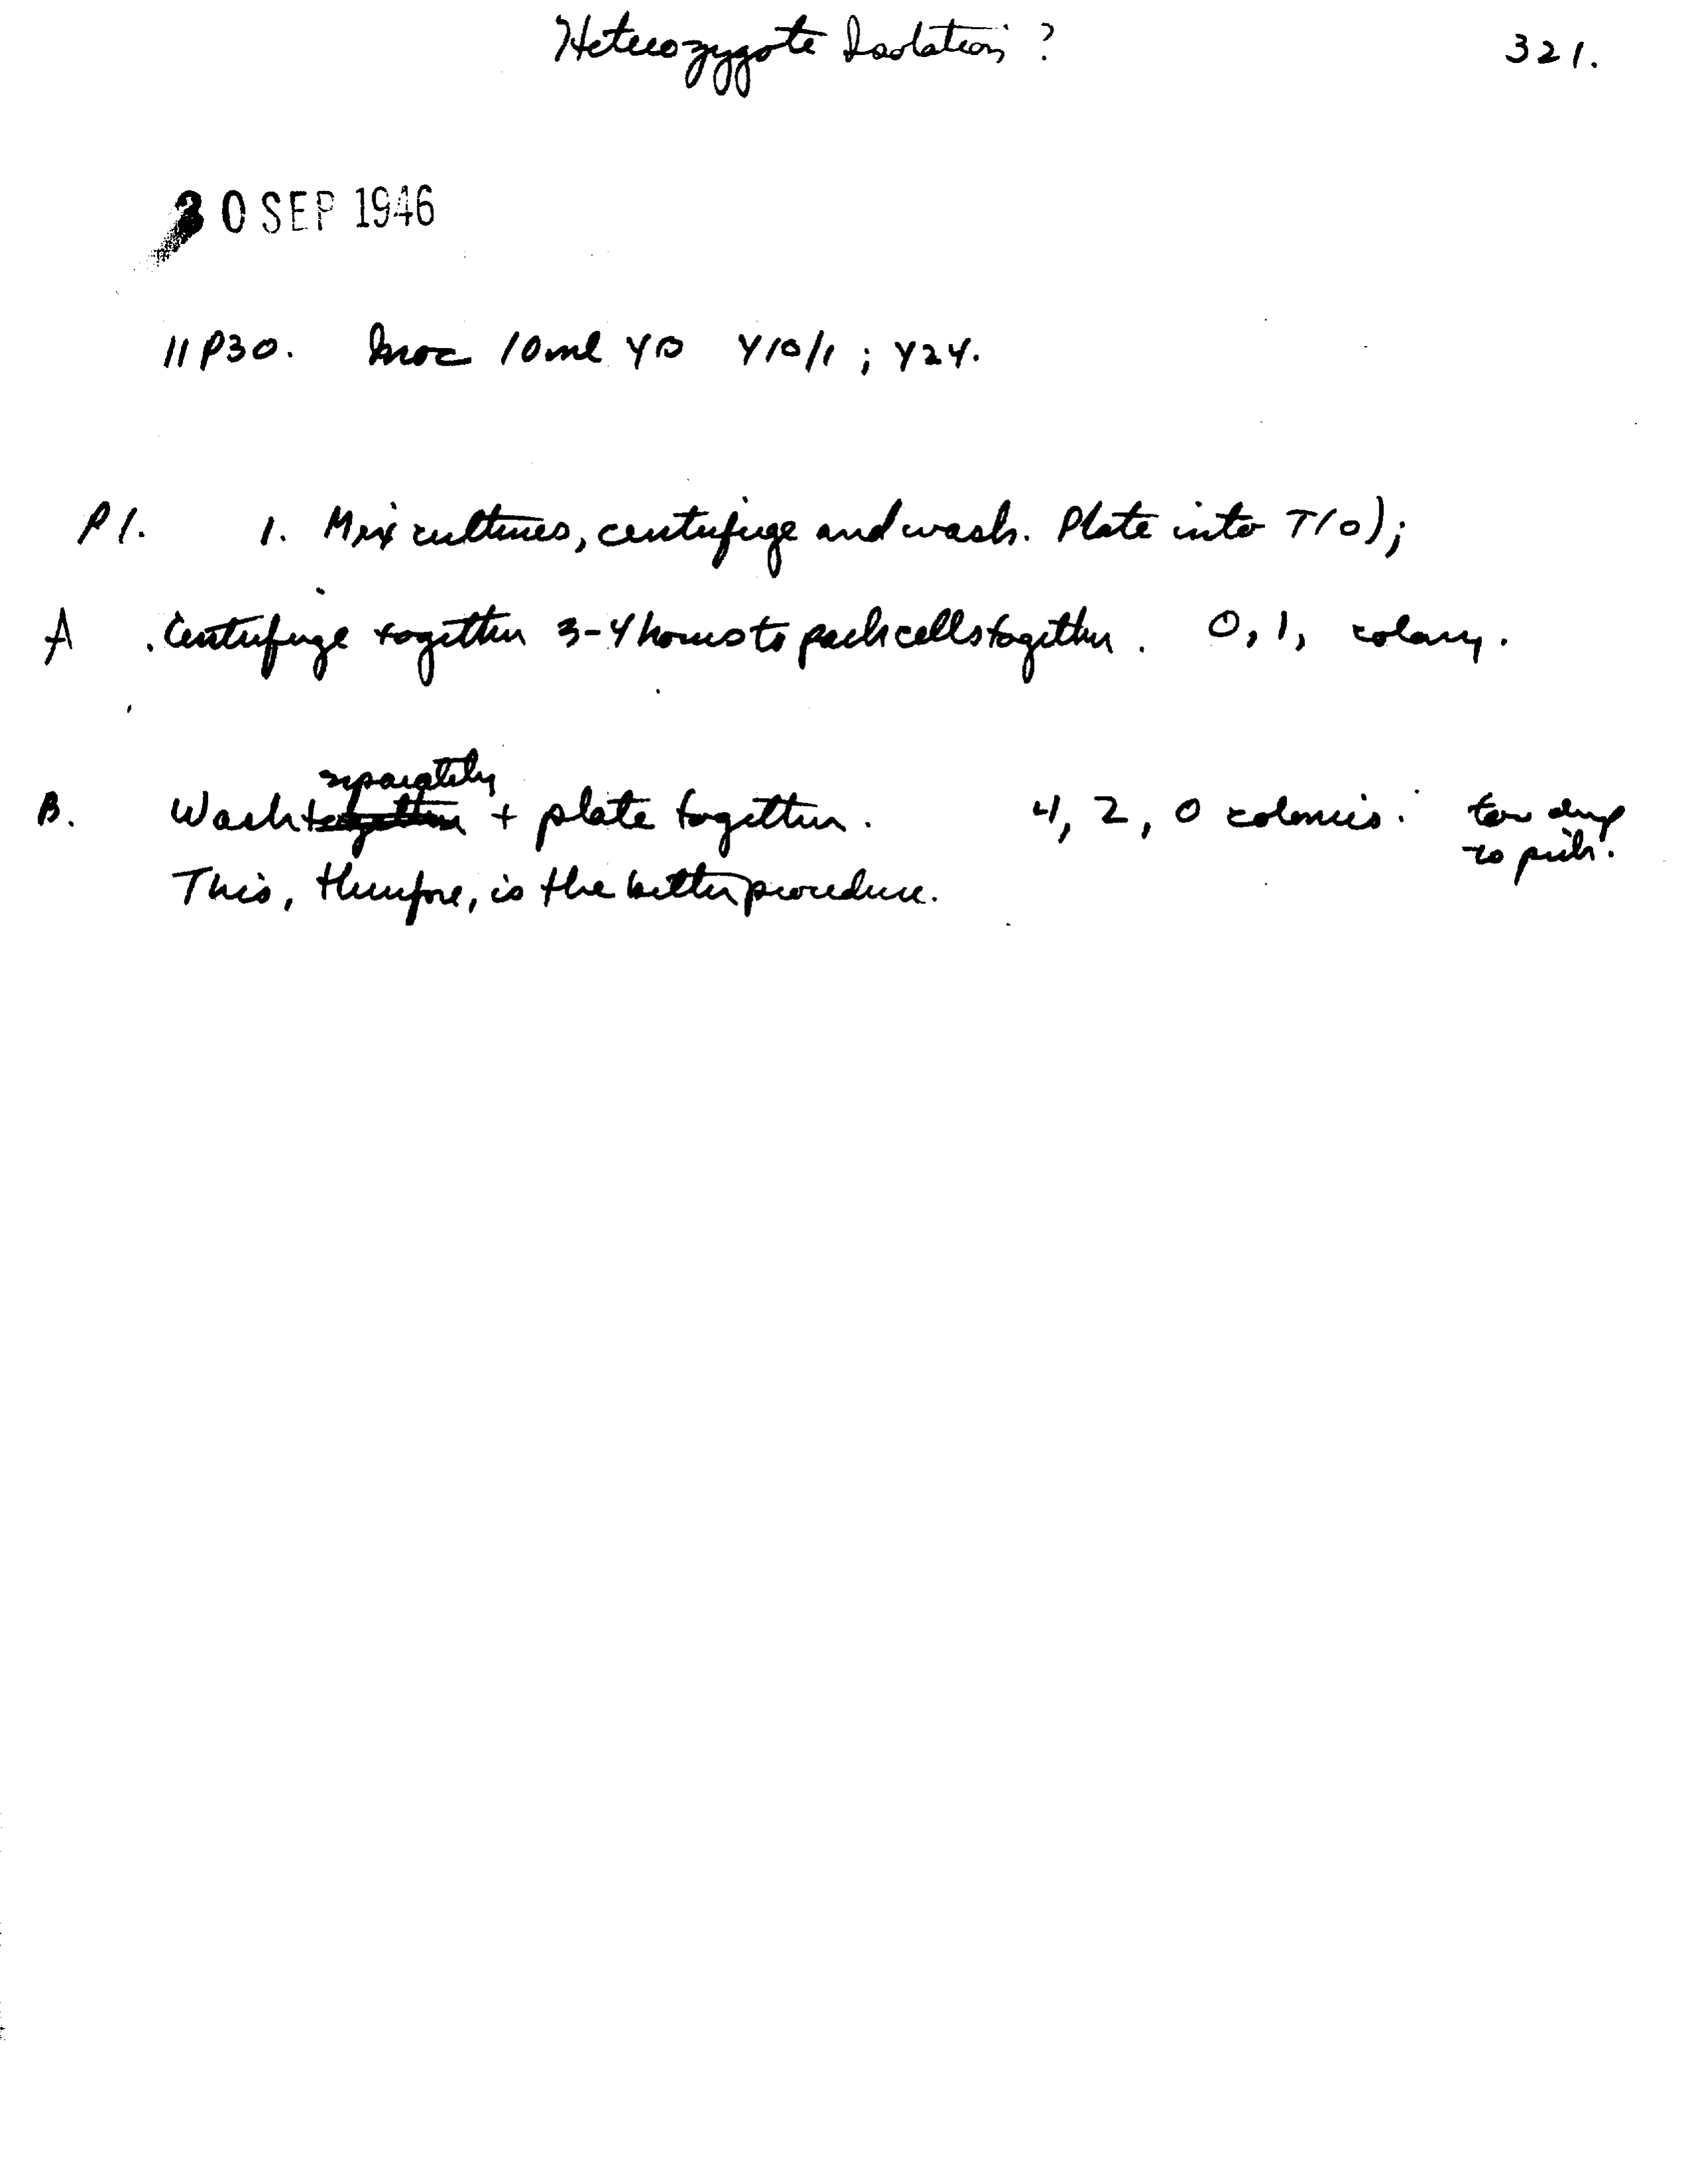 Heterozygote Isolation ?
321.
30 SEP 1946
11P30. Inoc 10ml YB Y10/1 ; Y24.
P1. 1. Mix cultures, centrifuge and wash. Plate into T(0);
A . Centrifuge together 3-4 hours to pack cells together. 0, 1, colony.
separately
B. Wash together + plate together. 4, 2, 0 colonies: too deep
to pick.
This, therefore, is the better procedure.